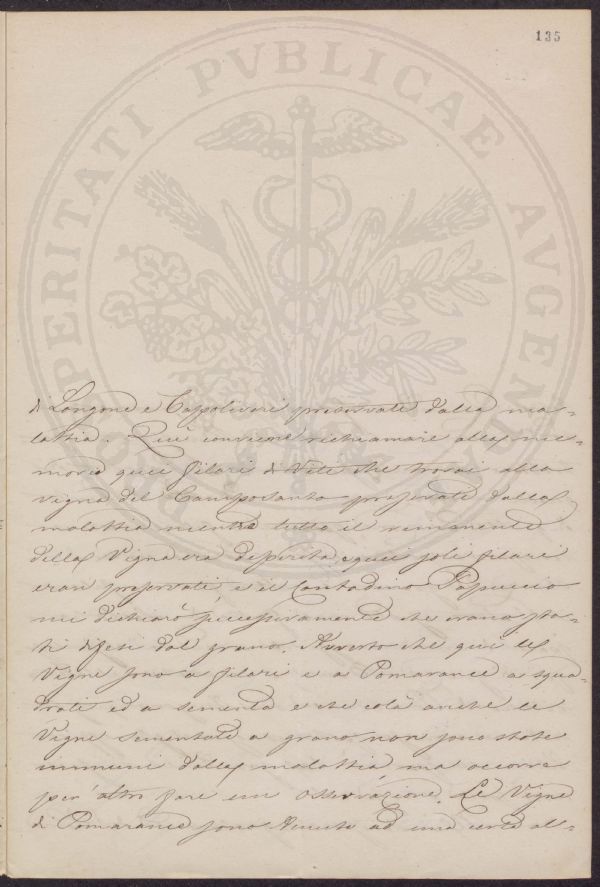 135
PROSPERITATI PVBLICAE AVGENDAE
di Longone e Capoliveri preservate dalla ma=
lattia. Qui conviene richiamare alla me=
moria quei filari di Vite che trovai alla
vigna del Camposanto preservate dalla
malattia mentre tutto il rimanente
della Vigna era deperita, quei soli filari
eran preservati, e il Contadino Papuccio
mi dichiarò successivamente che erano sta=
ti difesi dal grano. Avverto che qui le
Vigne sono a filari e a Pomarance a squa=
drati ed a sementa e che colà anche le
Vigne sementate a grano non sono state
immuni dalla malattia ma occorre
per altro fare un osservazione. Le Vigne
di Pomarance sono tenute ad una certa al=